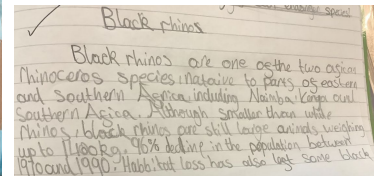 species
Black rhinos
Black rhinos are one of the two agican
rhinoceros species, nataive to parts of eastern
and southern Agrica, including Naimba, Kenya and
Southern Agica. Although smaller than white
rhinos, black rhinos are still large animals weighing
up to 1,400kg. 96% decline in the population between
1970 and 1990. Habbitat loss has also left some black